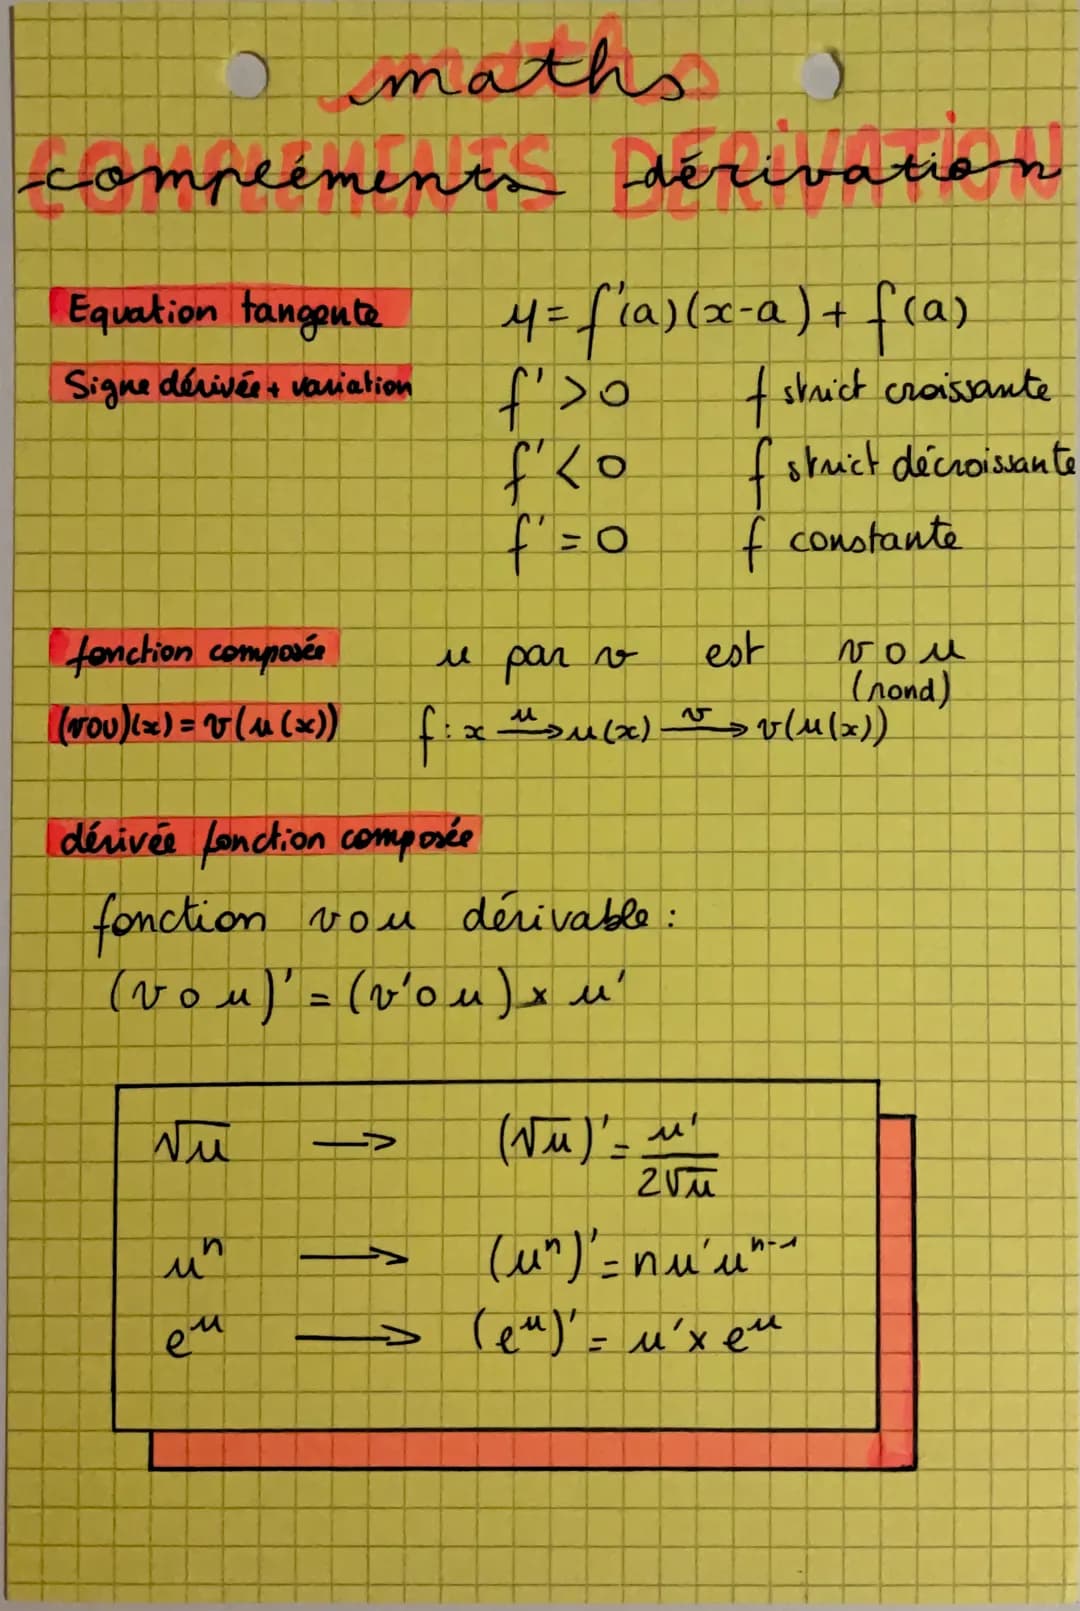 maths
compléments dérivation
COMPLÉMENTS DÉRIVATION
Equation tangente y = f'(a)(x-a) + f(a)
Signe dérivée + variation f' > 0 f strict croissante
f' < 0 f strict décroissante
f' = 0 f constante
fonction composée u par v est v o u
(rond)
(vou)(x) = v(u(x)) f : x —u→ u(x) —v→ v(u(x))
dérivée fonction composée
fonction v o u dérivable :
(v o u)' = (v' o u) x u'
√u → (√u)' = u' / 2√u
uⁿ → (uⁿ)' = n u' uⁿ⁻¹
eᵘ → (eᵘ)' = u' x eᵘ